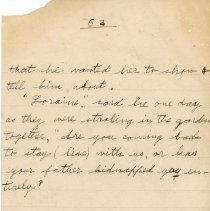 53
that he wanted her to show &
tell him, about.
"Loraine," said he one day
as they were strolling in the garden
together, "Are you coming back
to stay (live) with us, or has
your father kidnapped you en-
tirely?